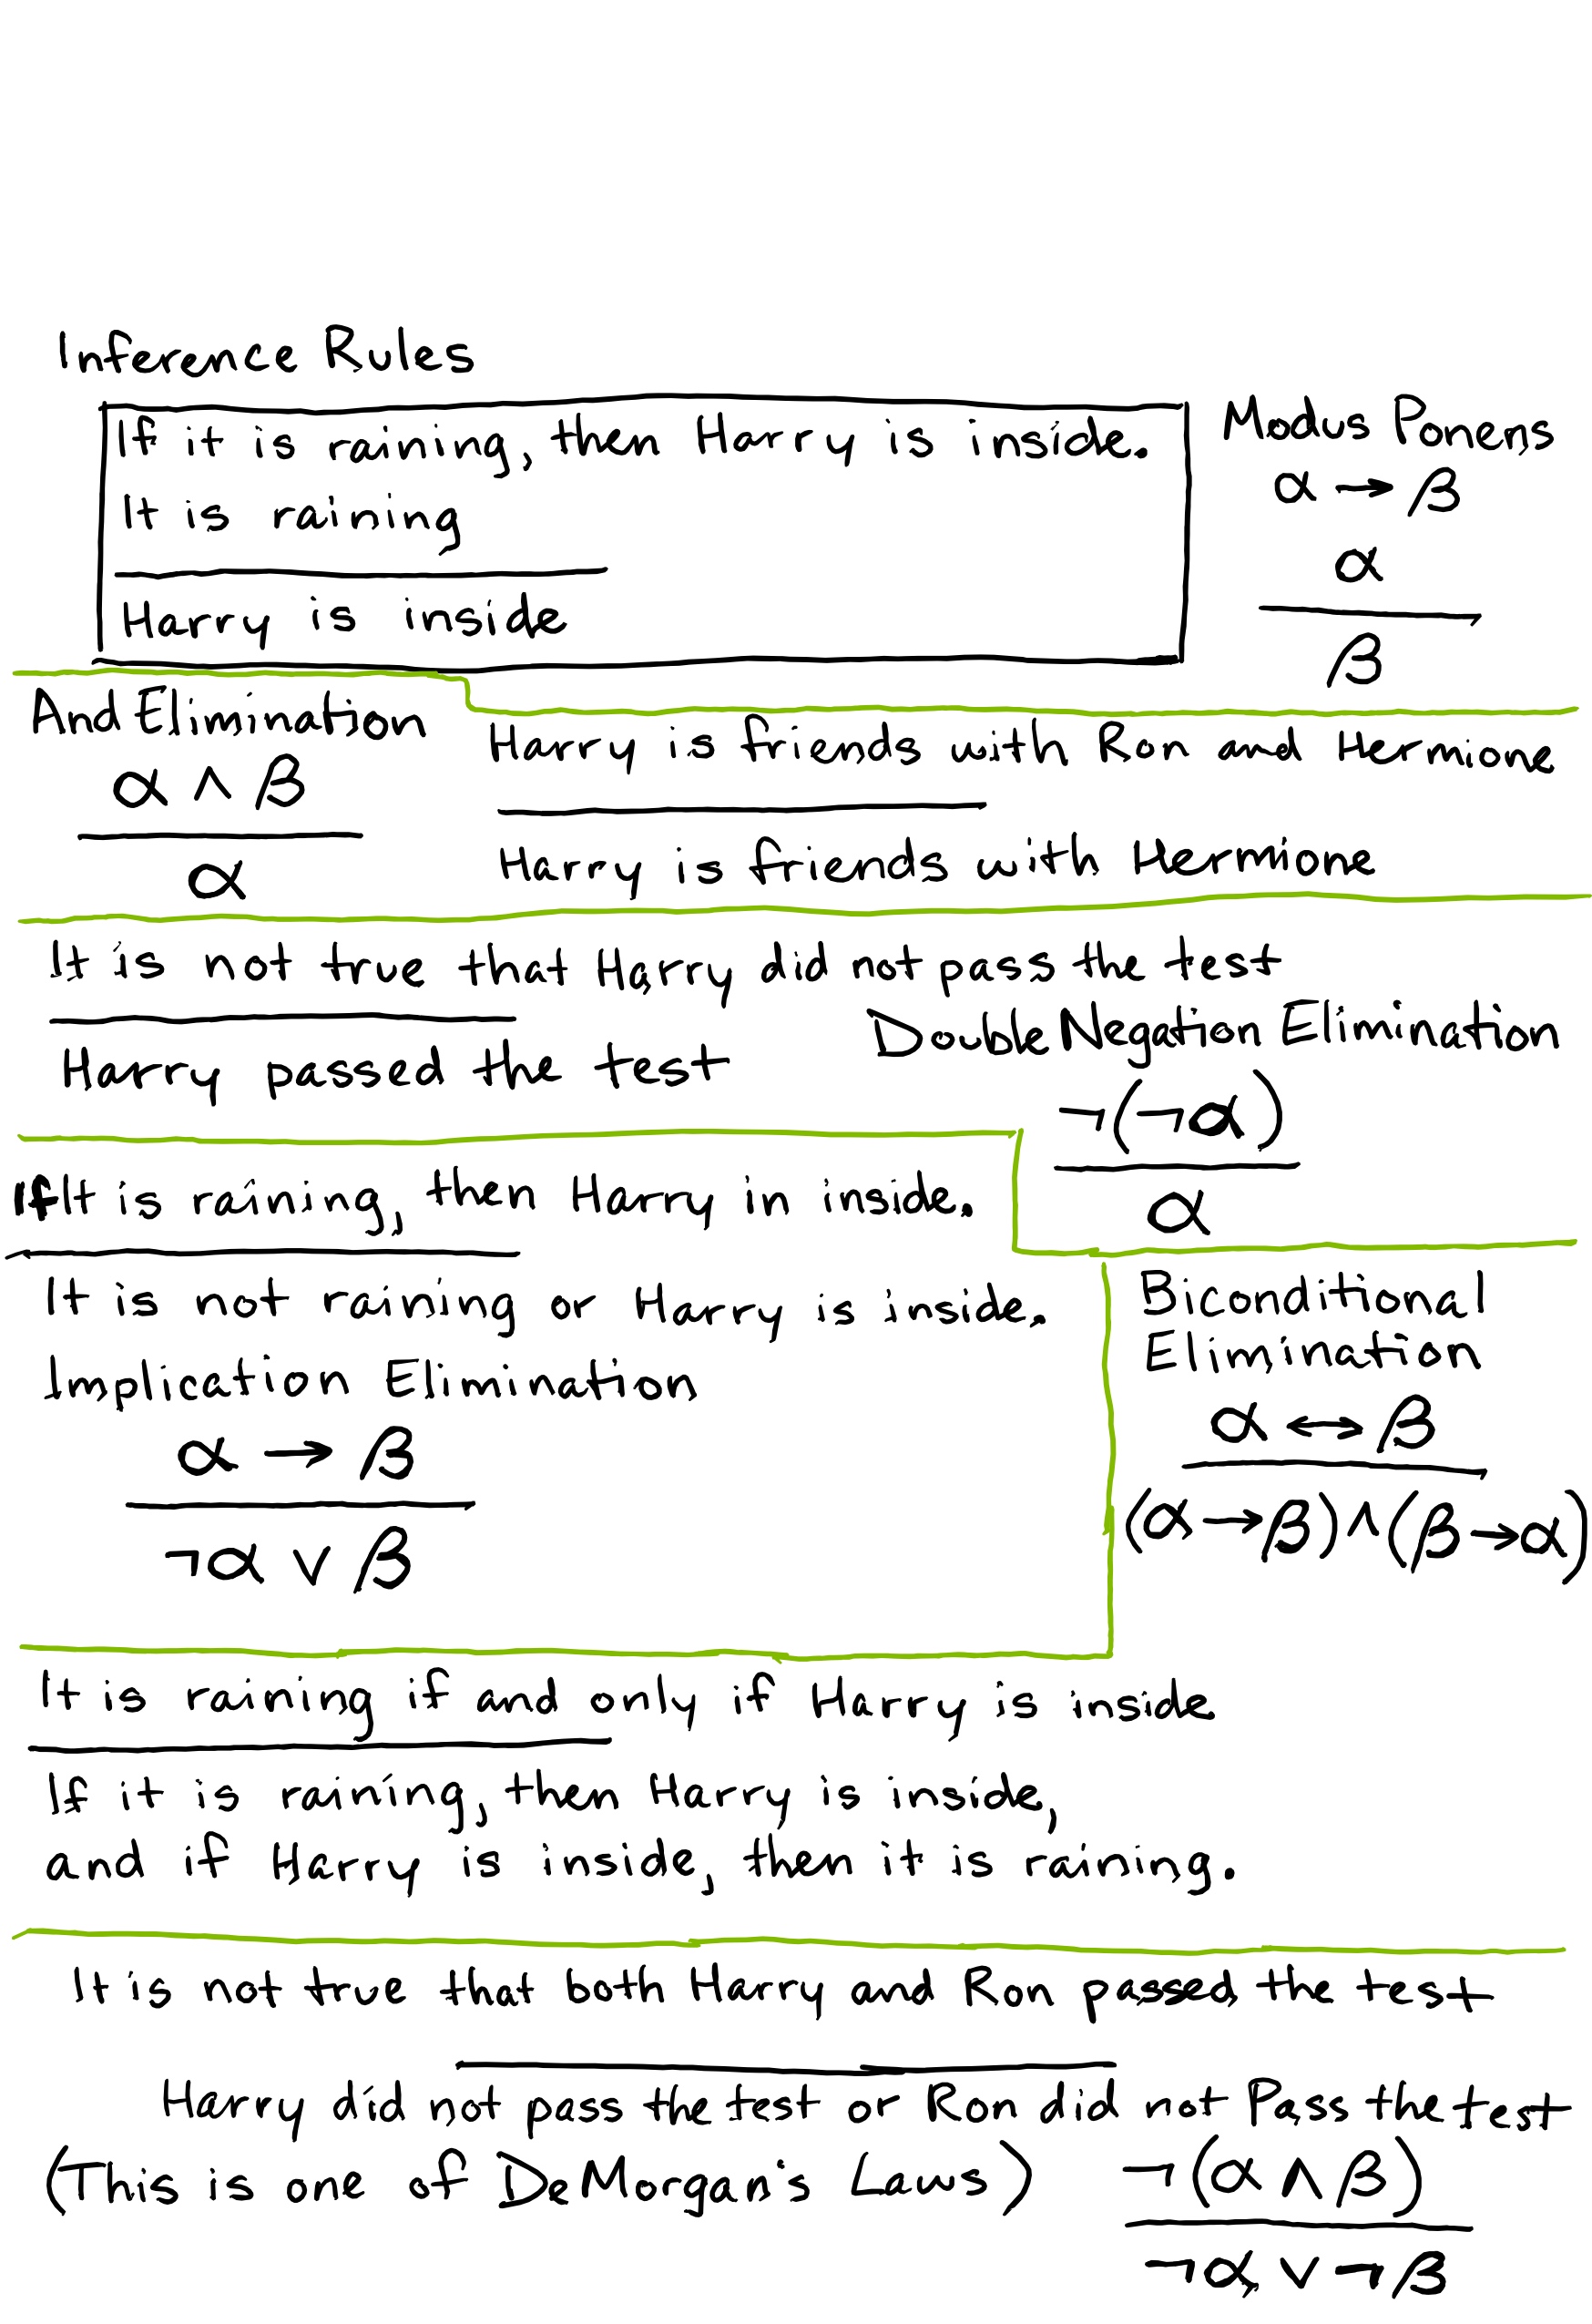 Inference Rules
If it is raining, then Harry is inside.
It is raining
Harry is inside
Modus Ponens
α → β
α
β
And Elimination
α ∧ β
α
Harry is friends with Ron and Hermione
Harry is friends with Hermione
It is not true that Harry did not pass the test
Harry passed the test
Double Negation Elimination
¬(¬α)
α
If It is raining, then Harry in inside.
It is not raining or Harry is inside.
Implication Elimination
α → β
¬α ∨ β
Biconditional
Elimination
α ↔ β
(α → β) ∧ (β → α)
It is raining if and only if Harry is inside
If it is raining, then Harry is inside,
and if Harry is inside, then it is raining.
It is not true that both Harry and Ron passed the test
Harry did not pass the test or Ron did not Pass the test
(This is one of DeMorgan's Laws)
¬(α ∧ β)
¬α ∨ ¬β